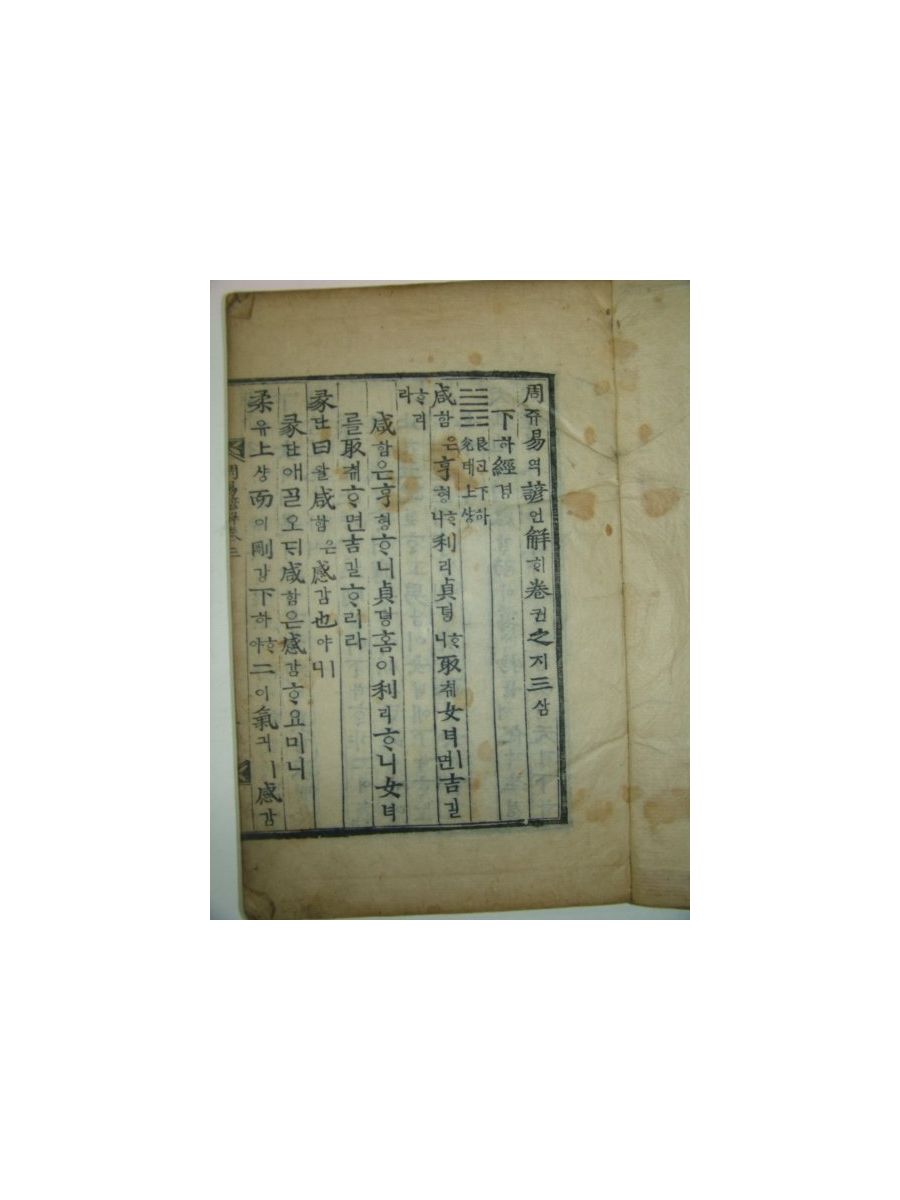 周쥬易역諺언解ᄒᆡ卷권之지三삼
下하經경
䷞ 艮간下하 兌태上샹
咸함은亨형ᄒᆞ니利리貞뎡ᄒᆞ니取ᄎᆔ女녀ㅣ면吉길
ᄒᆞ리라
咸함은亨형ᄒᆞ니貞뎡홈이利리ᄒᆞ니女녀
를取ᄎᆔᄒᆞ면吉길ᄒᆞ리라
彖단曰왈咸함은感감也야ㅣ니
彖단애ᄀᆞᆯ오ᄃᆡ咸함은感감ᄒᆞ요미니
柔유上샹而이剛강下하ᄒᆞ야二이氣긔ㅣ感감
周易諺解卷三